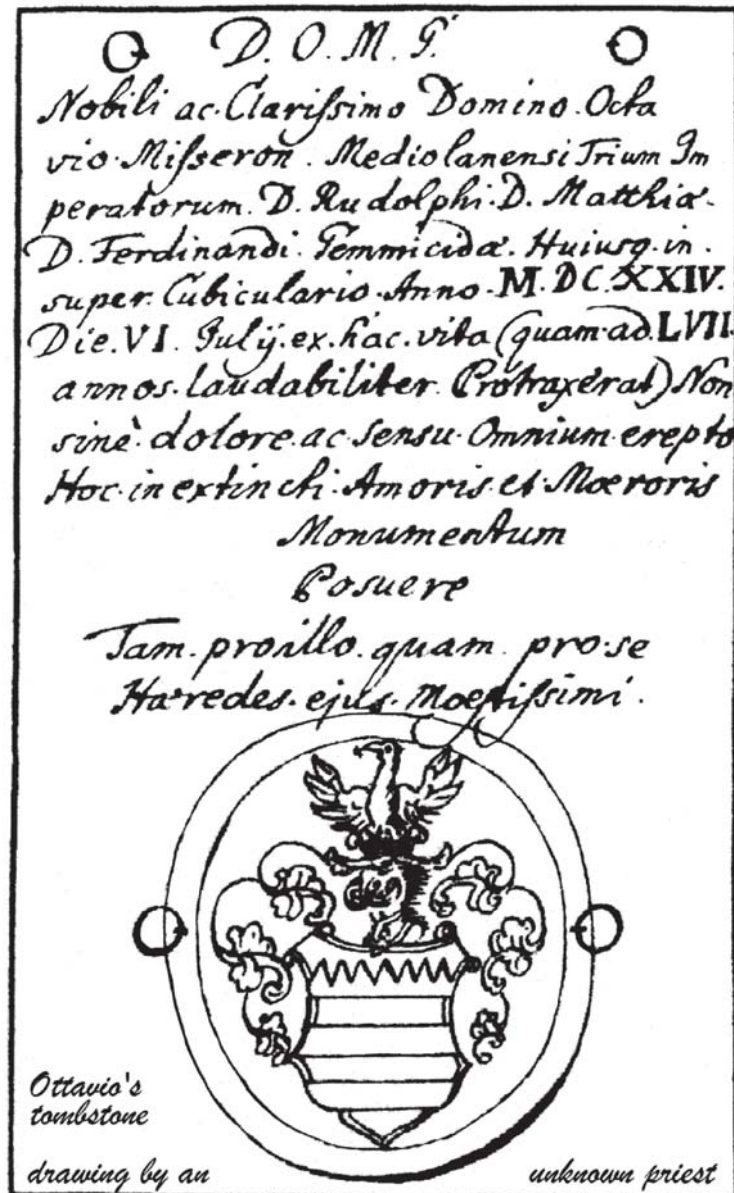 D. O. M. G.
Nobili ac. Clarissimo Domino. Octa
vio. Misseron. Mediolanensi Trium Im
peratorum. D. Rudolphi. D. Matthiæ.
D. Ferdinandi. Gemmicidæ. Huiusq. in.
super. Cubiculario. Anno. M. DC. XXIV.
Die. VI. Julÿ. ex. hac. vita (quam. ad. LVII.
annos. laudabiliter. Protraxerat) Non
sinè. dolore. ac. sensu. Omnium. erepto
Hoc. inextincti. Amoris. et. Mœroris
Monumentum
Posuere
Tam. pro illo. quam. pro. se
Hæredes. ejus. Moestissimi.
Ottavio's
tombstone
drawing by an unknown priest